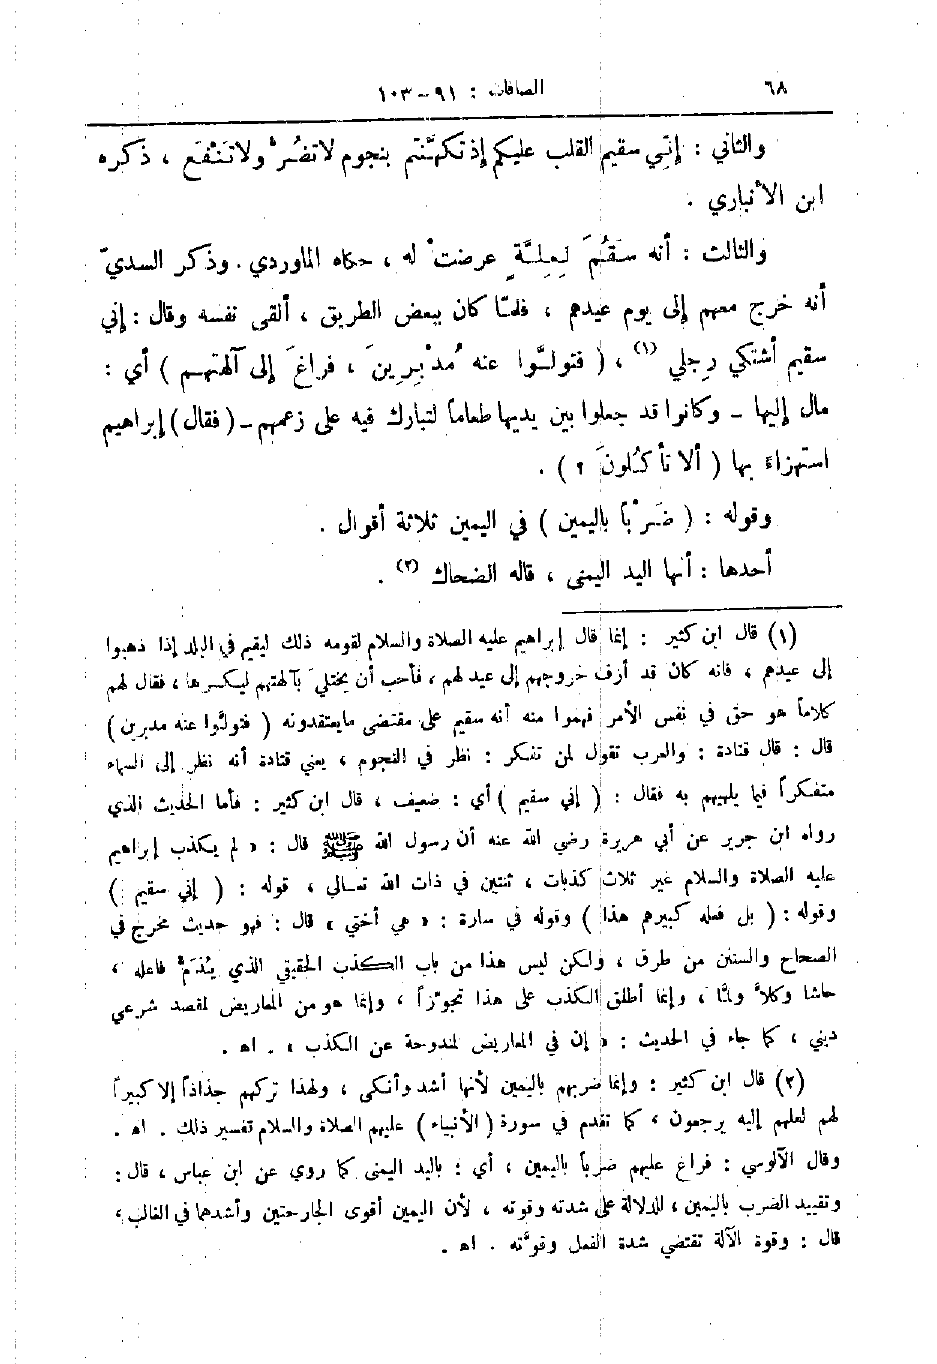 ٦٨ الصافات : ٩١ - ١٠٣
والثاني : إنّي سقيم القلب عليكم إذ تكهَّنتم بنجوم لا تضُرُّ ولا تَنْفَع ، ذكره
ابن الأنباري .
والثالث : أنه سَقُمَ لِعِلَّةٍ عرضتْ له ، حكاه الماوردي . وذكر السديّ
أنه خرج معهم إلى يوم عيدهم ، فلمّا كان ببعض الطريق ، ألقى نفسه وقال : إني
سقيم أشتكي رِجلي (١) ، ( فتولَّوا عنه مُدْبِرِينَ ، فراغَ إلى آلهتهم ) أي :
مال إليها - وكانوا قد جعلوا بين يديها طعاماً لتبارك فيه على زعمهم - ( فقال ) إبراهيم
استهزاءً بها ( ألا تأكُلونَ ؟ ) .
وقوله : ( ضَرْباً باليمين ) في اليمين ثلاثة أقوال .
أحدها : أنها اليد اليمنى ، قاله الضحاك (٢) .
(١) قال ابن كثير : إنما قال إبراهيم عليه الصلاة والسلام لقومه ذلك ليقيم في البلد إذا ذهبوا
إلى عيدهم ، فانه كان قد أزف خروجهم إلى عيد لهم ، فأحب أن يختليَ بآلهتهم ليكسرها ، فقال لهم
كلاماً هو حق في نفس الأمر فهموا منه أنه سقيم على مقتضى مايعتقدونه ( فتولَّوا عنه مدبرين )
قال : قال قتادة : والعرب تقول لمن تفكر : نظر في النجوم ، يعني قتادة أنه نظر إلى السماء
متفكراً فيما يلهيهم به فقال : ( إني سقيم ) أي : ضعيف ، قال ابن كثير : فأما الحديث الذي
رواه ابن جرير عن أبي هريرة رضي الله عنه أن رسول الله ﷺ قال : « لم يكذب إبراهيم
عليه الصلاة والسلام غير ثلاث كذبات ، ثنتين في ذات الله تعالى ، قوله : ( إني سقيم )
وقوله : ( بل فعله كبيرهم هذا ) وقوله في سارة : « هي أختي » قال : فهو حديث مخرج في
الصحاح والسنن من طرق ، ولكن ليس هذا من باب الكذب الحقيقي الذي يُذَمُّ فاعله ،
حاشا وكلاَّ ولمَّا ، وإنما أطلق الكذب على هذا تجوّزاً ، وإنما هو من المعاريض لمقصد شرعي
ديني ، كما جاء في الحديث : « إن في المعاريض لمندوحة عن الكذب » . اه .
(٢) قال ابن كثير : وإنما ضربهم باليمين لأنها أشد وأنكى ، ولهذا تركهم جذاذاً إلا كبيراً
لهم لعلهم إليه يرجعون ، كما تقدم في سورة ( الأنبياء ) عليهم الصلاة والسلام تفسير ذلك . اه .
وقال الآلوسي : فراغ عليهم ضرباً باليمين ، أي : باليد اليمنى كما روي عن ابن عباس ، قال :
وتقييد الضرب باليمين ، للدلالة على شدته وقوته ، لأن اليمين أقوى الجارحتين وأشدهما في الغالب ،
قال : وقوة الآلة تقتضي شدة الفعل وقوَّته . اه .